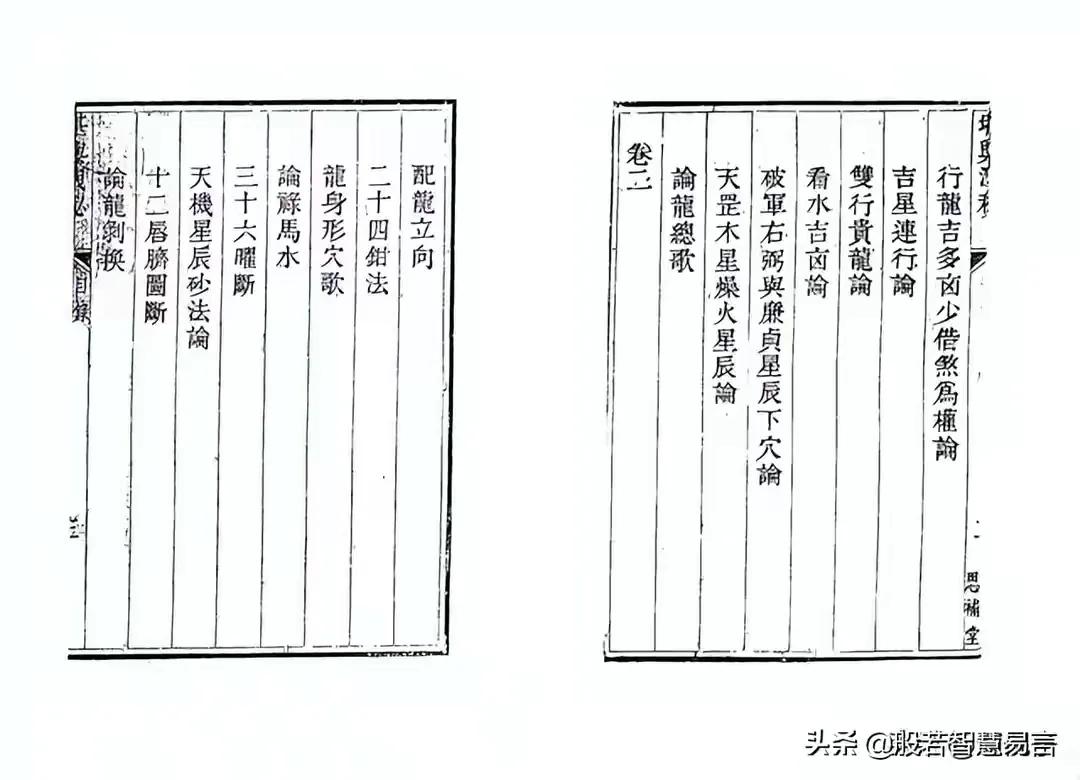 行龍吉多卤少借煞爲權論
吉星連行論
雙行貴龍論
看水吉卤論
破軍右弼與廉貞星辰下穴論
天罡木星燥火星辰論
論龍總歌
卷二
思補堂
配龍立向
二十四鉗法
龍身形穴歌
論祿馬水
三十六曜斷
天機星辰砂法論
十二唇臍圖斷
論龍剝換
目錄
三
头条 @般若智慧易言